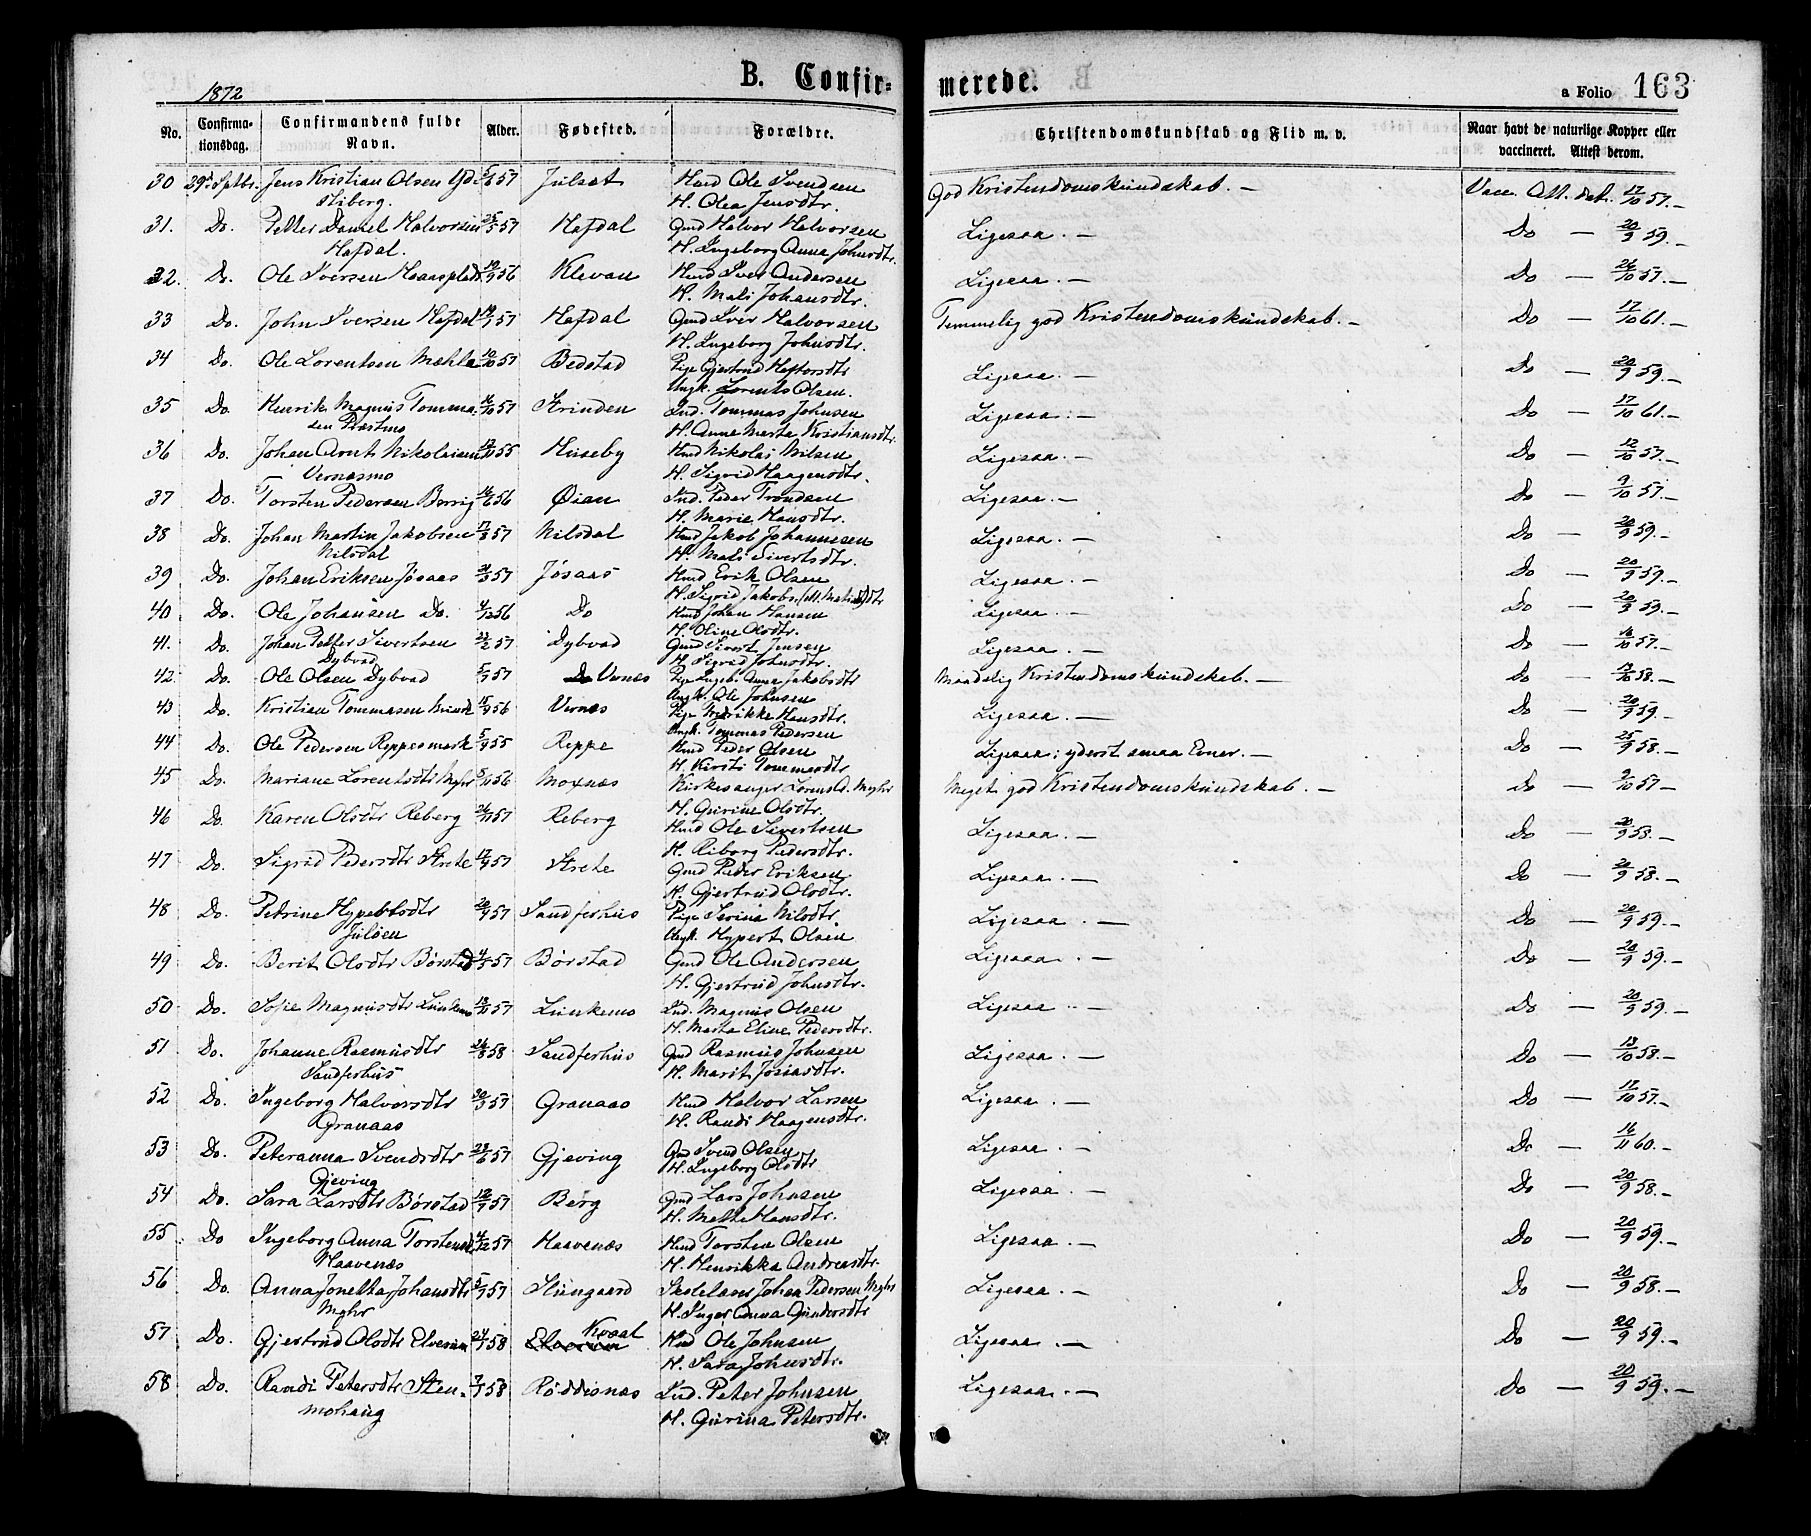 1872
B. Confir=
merede.
a Folio 163
No. Confirma-tionsdag. Confirmandens fulde Navn. Alder. Fødested. Forældre. Christendomskundskab og Flid m. v. Naar havt de naturlige Kopper eller vaccineret. Attest derom.
30 29de Septbr. Jens Kristian Olsen 57 Julset Hmd Ole Svendsen God Kristendomskundskab. — Vacc. Att. dat. 17/10 57. —
stiberg. H. Olea Jensdtr.
31. Do. Petter Daniel Halvorsen 25/5 57 Hafdal Gmd Halvor Halvorsen Ligesaa. — Do — 20/9 59. —
Hafdal. H. Ingeborg Anna Johnsdtr.
32. Do. Ole Iversen 56 Klevan Hmd Iver Andersen Ligesaa. — Do — 26/10 57. —
H. Mali Johansdtr.
33 Do. John Iversen Hafdal 57 Hafdal Gmd Iver Halvorsen Temmelig god Kristendomskundskab. — Do — 17/10 61. —
H. Ingeborg Johnsdtr.
34 Do. Ole Lorentsen Mæhle 10/10 57 Bedstad Pige Gjertrud Heftorsdtr Ligesaa. — Do — 20/9 59. —
Ungk. Lorents Olsen.
35 Do. Henrik Magnus Tomma- 16/10 57 Strinden Ind. Tommas Johnsen Ligesaa. — Do — 17/10 61. —
sen Præstmo H. Anne Marta Kristiansdtr.
36 Do. Johan Arnt Nikolaisen 55 Huseby Hmd Nikolai Nilsen Ligesaa. — Do — 12/10 57. —
Vernesmo H. Sigrid Haagensdtr.
37 Do. Torsten Pedersen 16/6 56 Øian Ind. Peder Trondsen Ligesaa. — Do — 9/10 57. —
H. Marie Hansdtr.
38 Do. Johan Martin Jakobsen 57 Nilsdal Hmd Jakob Johannesen Ligesaa. — Do — 20/9 59. —
Nilsdal H. Mali Sivertsdtr.
39 Do. Johan Eriksen Jøsaas 57 Jøsaas Hmd Erik Olsen Ligesaa. — Do — 20/9 59. —
H. Sigrid Jakobs.
40 Do. Ole Johansen Do. 56 Do Hmd Johan Hansen Ligesaa. — Do — 20/9 59. —
H. Oline Olsdtr.
41. Do. Johan Petter Sivertsen 57 Dybvad Gmd Sivert Jensen Ligesaa. — Do — 16/10 57. —
Dybvad H. Sigrid Johnsdtr.
42 Do. Ole Olsen Dybvad 57 Do Vernes Pige Ingeb. Anna Jakobsdtr Maadelig Kristendomskundskab. — Do — 58. —
Ungk. Ole Johnsen
43 Do. Kristian Tommasen 56 Vernes Pige Fredrikke Hansdtr. Ligesaa. — Do — 20/9 59. —
Ungk. Tommas Pedersen
44 Do. Ole Pedersen Reppesmark 5/9 55 Reppe Hmd Peder Olsen Ligesaa; yderst smaa Evner. — Do — 25/9 58. —
H. Kirsti Tommasdtr
45 Do. Mariane Lorentsdtr Myhr 56 Moxnæs Kirkesanger Lorents O. Myhr Meget god Kristendomskundskab. — Do — 9/10 57 —
H. Gurine Olsdtr.
46 Do. Karen Olsdtr Reberg 57 Reberg Hmd Ole Sivertsen Ligesaa. — Do — 20/9 58. —
H. Riborg Pedersdtr.
47 Do. Sigrid Pedersdtr Strete 57 Strete Gmd Peder Eriksen Ligesaa. — Do — 58. —
H. Gjertrud Olsdtr.
48 Do. Petrine Hypertsdtr 20/9 57 Sandferhus Pige Serina Nilsdtr. Ligesaa. — Do — 20/9 59. —
Juløen Ungk. Hypert Olsen
49 Do. Berit Olsdtr Børstad 57 Børstad Gmd Ole Andersen Ligesaa. — Do — 20/9 59. —
H. Gjertrud Johnsdtr.
50 Do. Sofie Magnusdtr Lunkemo 57 Lunkemo Ind. Magnus Olsen Ligesaa. — Do — 20/9 59. —
H. Marta Eline Pedersdtr.
51 Do. Johanne Rasmusdtr 58 Sandferhus Gmd Rasmus Johnsen Ligesaa. — Do — 18/10 58. —
Sandferhus H. Marit Josiasdtr.
52 Do. Ingeborg Halvorsdtr 57 Granaas Hmd Halvor Larsen Ligesaa. — Do — 17/10 57. —
Granaas H. Randi Haagensdtr.
53 Do. Peteranna Svendsdtr 57 Gjeving Gmd Svend Olsen Ligesaa. — Do — 16/11 60. —
Gjeving H. Ingeborg Olsdtr
54 Do. Sara Larsdtr Børstad 57 Berg Gmd Lars Johnsen Ligesaa. — Do — 20/9 58. —
H. Mette Hansdtr.
55 Do Ingeborg Anna Torstensd. 57 Haavenæs Hmd Torsten Olsen Ligesaa. — Do — 20/9 59. —
Haavenæs H. Henrikka Andreasdtr.
56 Do. Anna Jonetta Johansdtr 57 Stungaard Skolelærer Johan Pedersen Myhr Ligesaa. — Do — 20/9 58. —
Myhr H. Inger Anna Gundersdtr
57 Do. Gjertrud Olsdtr Elverum 58 Elverum Kvaal Hmd Ole Johnsen Ligesaa. — Do — 20/9 59. —
H. Sara Johnsdtr.
58 Do. Randi Petersdtr Sten- 58 Røddisnæs Ind. Peter Johnsen Ligesaa. — Do — 20/9 59. —
mohaug H. Gurina Petersdtr.